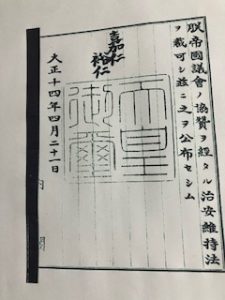 朕帝國議會ノ協賛ヲ經タル治安維持法
ヲ裁可シ玆ニ之ヲ公布セシム
嘉仁
裕仁
天皇
御璽
大正十四年四月二十一日